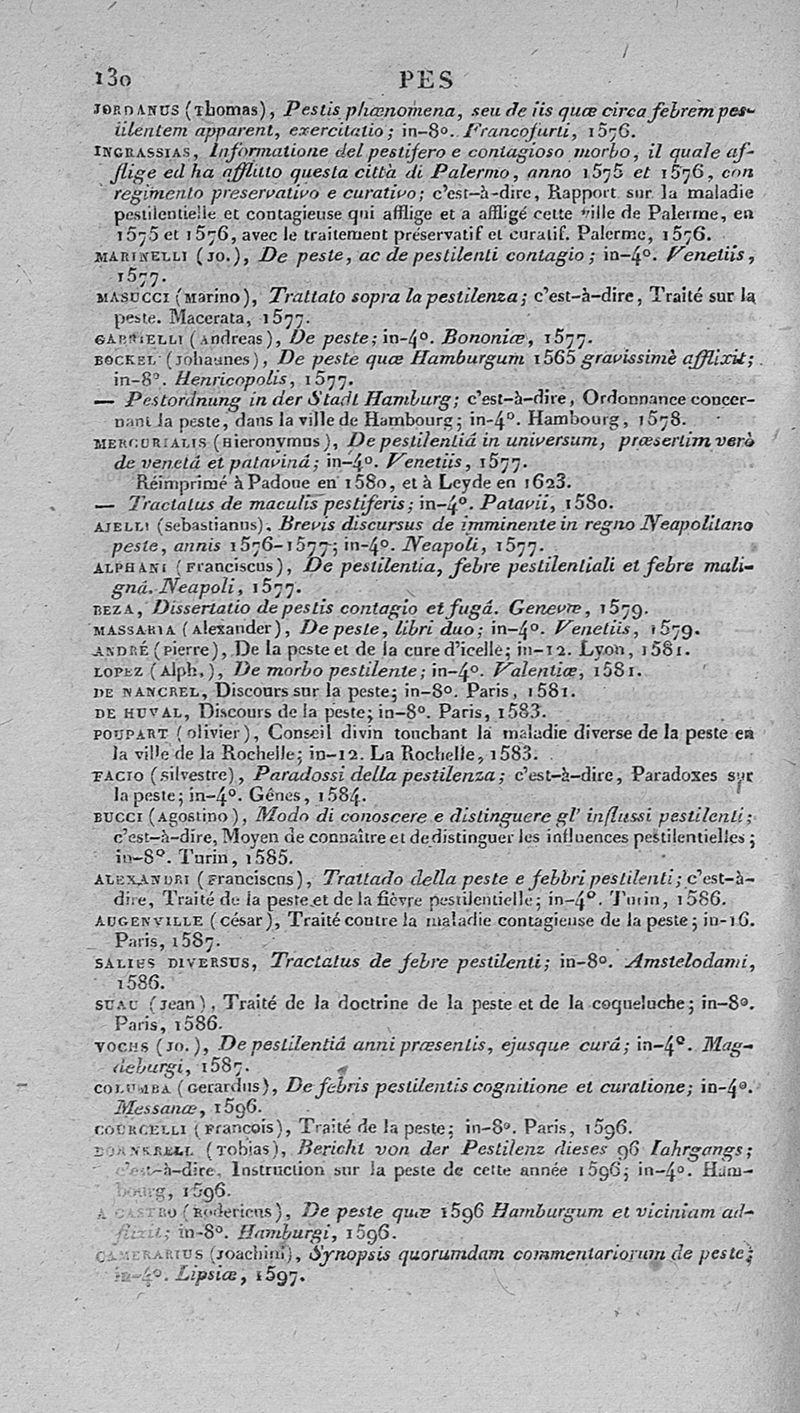 130 PES
JORDANUS (Thomas), Pestis phænomena, seu de iis quæ circa febrem pes-
tilentem apparent, exercitatio; in-8°. Francofurti, 1576.
INGRASSIAS, Informatione del pestifero e contagioso morbo, il quale af-
flige ed ha afflitto questa città di Palermo, anno 1575 et 1576, con
regimento preservativo e curativo; c'est-à-dire, Rapport sur la maladie
pestilentielle et contagieuse qui afflige et a affligé cette ville de Palerme, en
1575 et 1576, avec le traitement préservatif et curatif. Palerme, 1576.
MARINELLI (Jo.), De peste, ac de pestilenti contagio; in-4°. Venetiis,
1577.
MASUCCI (Marino), Trattato sopra la pestilenza; c'est-à-dire, Traité sur la
peste. Macerata, 1577.
GABRIELLI (Andreas), De peste; in-4°. Bononiæ, 1577.
BOCKEL (Johannes), De peste quæ Hamburgum 1565 gravissimè afflixit;
in-8°. Henricopolis, 1577.
— Pestordnung in der Stadt Hamburg; c'est-à-dire, Ordonnance concer-
nant la peste, dans la ville de Hambourg; in-4°. Hambourg, 1578.
MERCURIALIS (Hieronymus), De pestilentiâ in universum, præsertim verò
de venetâ et patavinâ; in-4°. Venetiis, 1577.
Réimprimé à Padoue en 1580, et à Leyde en 1623.
— Tractatus de maculis pestiferis; in-4°. Patavii, 1580.
AJELLI (Sebastianus), Brevis discursus de imminente in regno Neapolitano
peste, annis 1576-1577; in-4°. Neapoli, 1577.
ALPHANI (Franciscus), De pestilentia, febre pestilentiali et febre mali-
gnâ. Neapoli, 1577.
BEZA, Dissertatio de pestis contagio et fugâ. Genevæ, 1579.
MASSARIA (Alexander), De peste, libri duo; in-4°. Venetiis, 1579.
ANDRÉ (Pierre), De la peste et de la cure d'icelle; in-12. Lyon, 1581.
LOPEZ (Alph.), De morbo pestilente; in-4°. Valentiæ, 1581.
DE NANCREL, Discours sur la peste; in-8°. Paris, 1581.
DE HUVAL, Discours de la peste; in-8°. Paris, 1583.
POUPART (Olivier), Conseil divin touchant la maladie diverse de la peste en
la ville de la Rochelle; in-12. La Rochelle, 1583.
FACIO (Silvestre), Paradossi della pestilenza; c'est-à-dire, Paradoxes sur
la peste; in-4°. Gênes, 1584.
BUCCI (Agostino), Modo di conoscere e distinguere gl' influssi pestilenti;
c'est-à-dire, Moyen de connaître et de distinguer les influences pestilentielles;
in-8°. Turin, 1585.
ALEXANDRI (Franciscus), Trattado della peste e febbri pestilenti; c'est-à-
dire, Traité de la peste et de la fièvre pestilentielle; in-4°. Turin, 1586.
AUGENVILLE (César), Traité contre la maladie contagieuse de la peste; in-16.
Paris, 1587.
SALIUS DIVERSUS, Tractatus de febre pestilenti; in-8°. Amstelodami,
1586.
SUAU (Jean), Traité de la doctrine de la peste et de la coqueluche; in-8°.
Paris, 1586.
VOCHS (Jo.), De pestilentiâ anni præsentis, ejusque curâ; in-4°. Mag-
deburgi, 1587.
COLUMBA (Gerardus), De febris pestilentis cognitione et curatione; in-4°.
Messanæ, 1596.
COURCELLI (François), Traité de la peste; in-8°. Paris, 1596.
(Tobias), Bericht von der Pestilenz dieses 96 Iahrgangs;
c'est-à-dire, Instruction sur la peste de cette année 1596; in-4°. Ham-
bourg, 1596.
A CASTRO (Rodericus), De peste quæ 1596 Hamburgum et viciniam ad-
flixit; in-8°. Hamburgi, 1596.
CAMERARIUS (Joachim), Synopsis quorumdam commentariorum de peste;
in-4°. Lipsiæ, 1597.